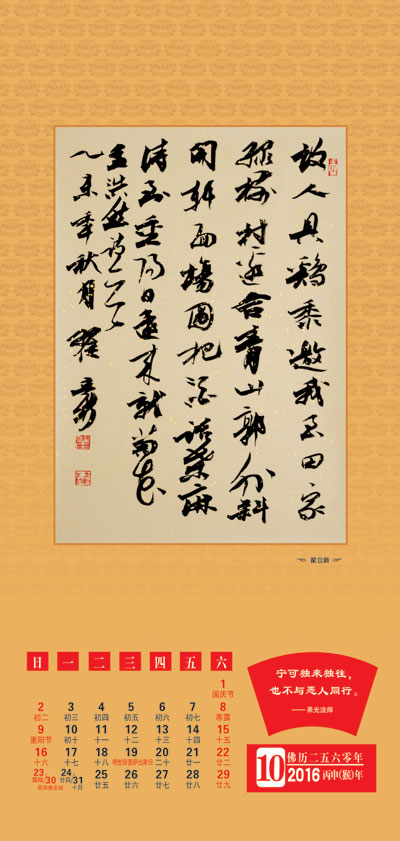 故人具鷄黍邀我至田家
綠樹村邊合青山郭外斜
開軒面場圃把酒話桑麻
待到重陽日還來就菊花
孟浩然
乙未季秋月 翟立新
翟立新
日 一 二 三 四 五 六
1
国庆节
2 3 4 5 6 7 8
初二 初三 初四 初五 初六 初七 寒露
9 10 11 12 13 14 15
重阳节 初十 十一 十二 十三 十四 十五
16 17 18 19 20 21 22
十六 十七 十八 观世音菩萨出家日 二十 廿一 廿二
23/30 24/31 25 26 27 28 29
霜降 廿四 十月 廿五 廿六 廿七 廿八 廿九
药师佛圣诞
宁可独来独往,
也不与恶人同行。
——果光法师
10 佛历二五六零年
2016 丙申(猴)年